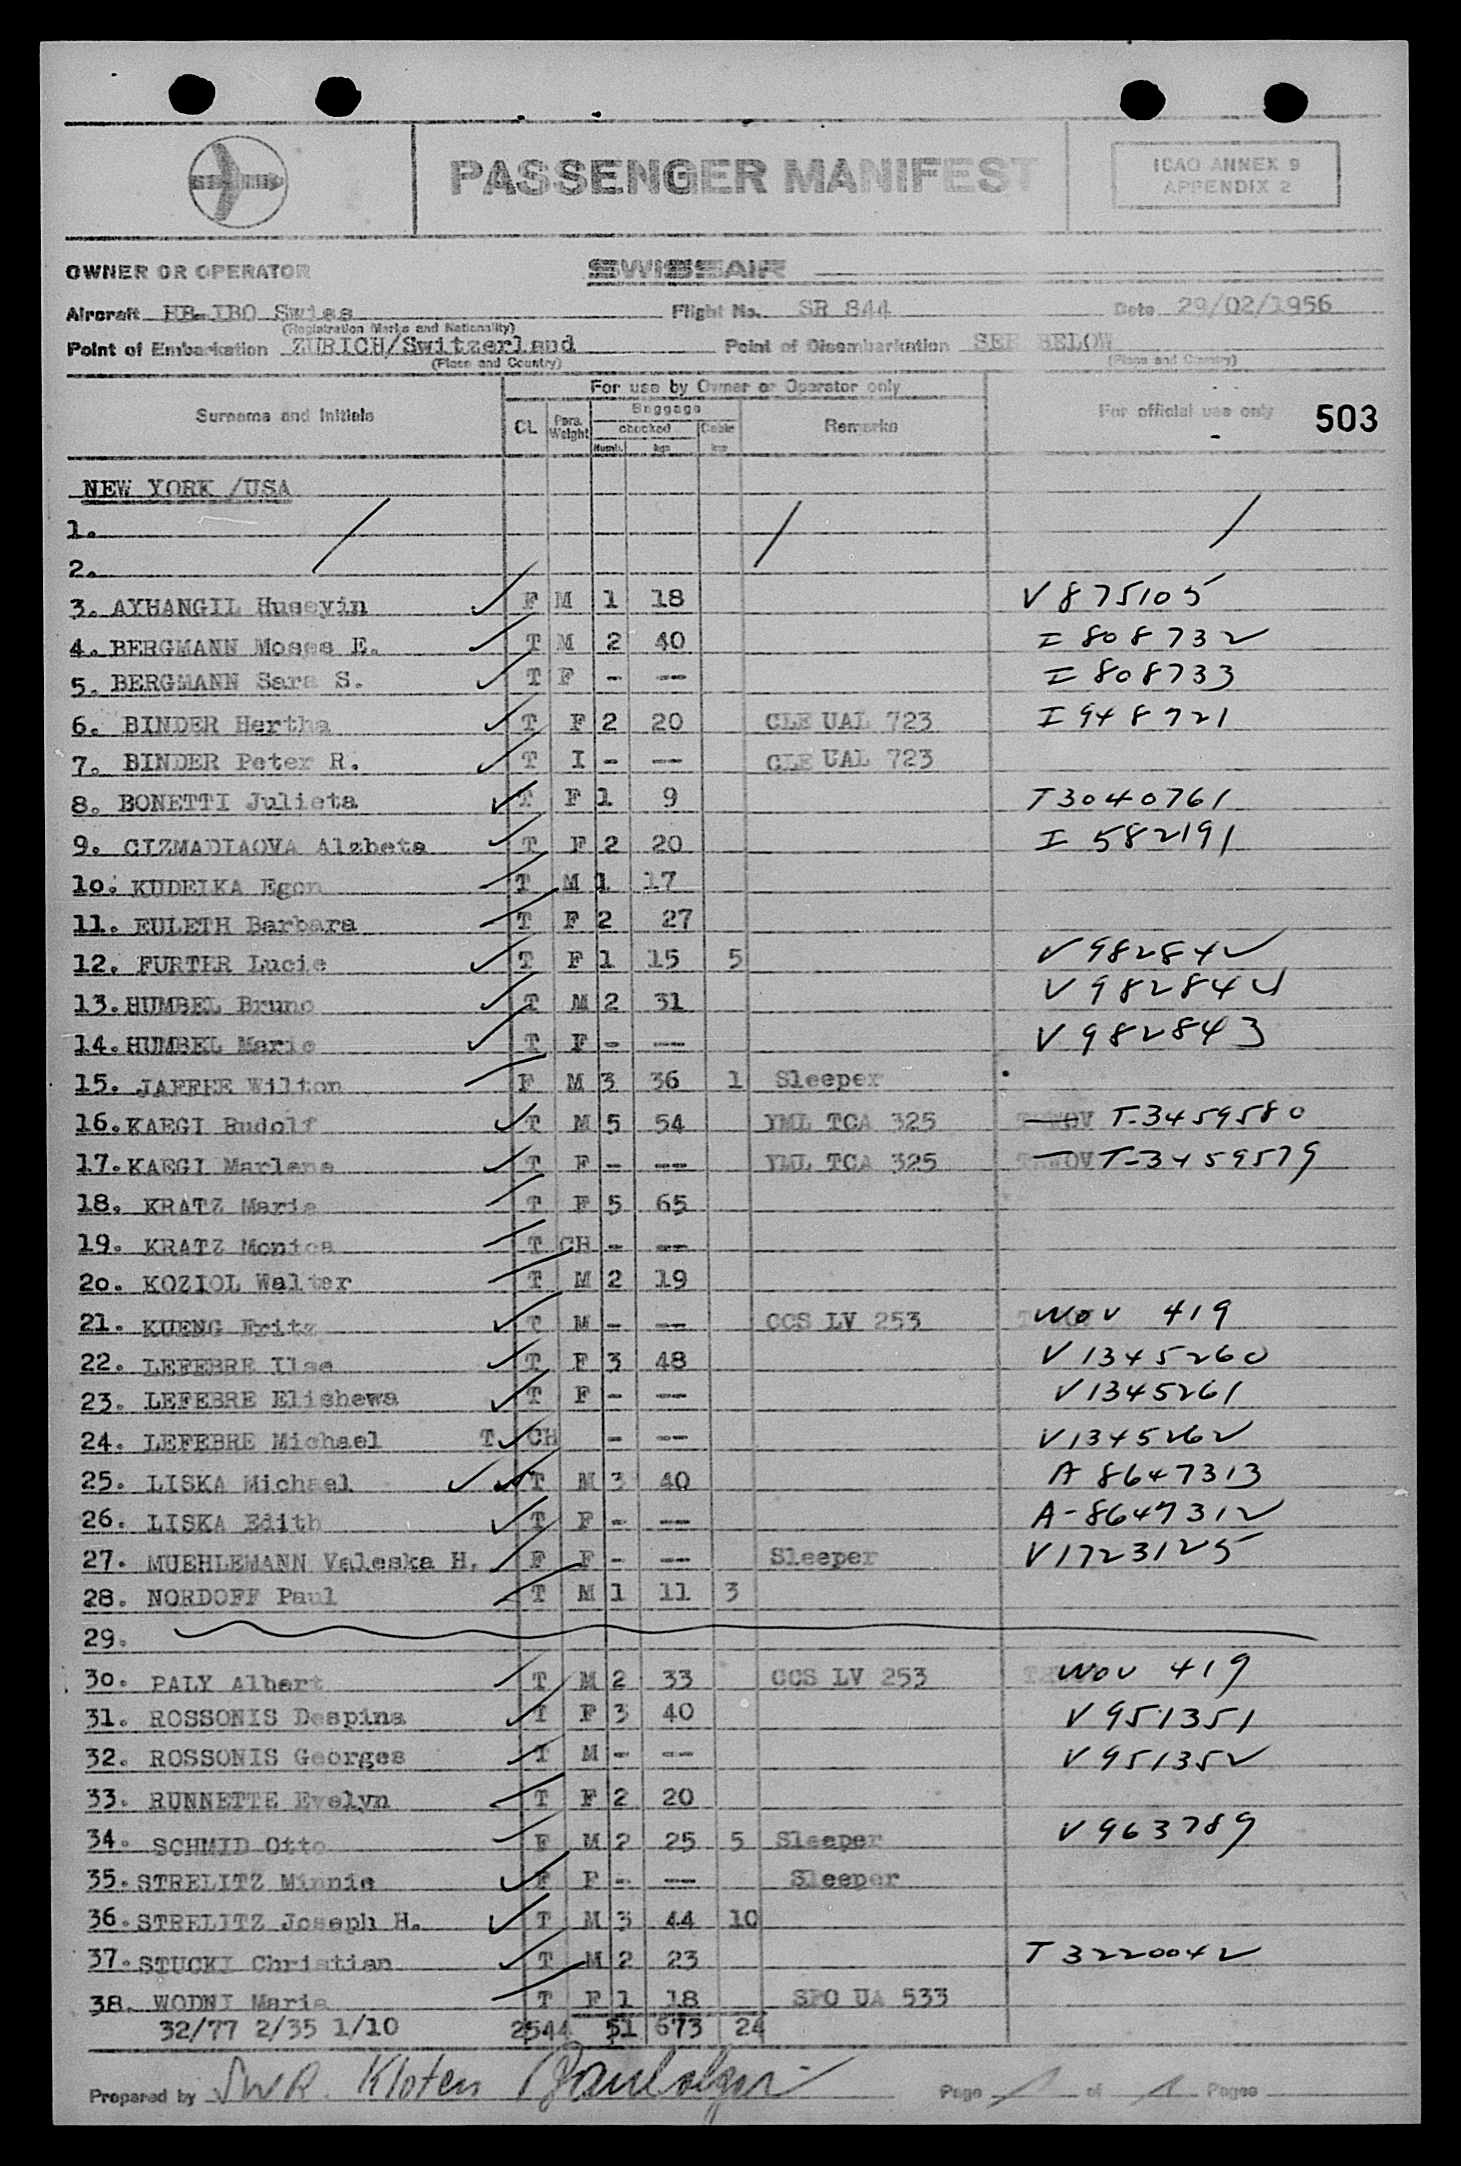 PASSENGER MANIFEST
ICAO ANNEX 9
APPENDIX 2
OWNER OR OPERATOR SWISSAIR
Aircraft HB-IBO Swiss Flight No. SR 844 Date 29/02/1956
(Registration Marks and Nationality)
Point of Embarkation ZURICH/Switzerland Point of Disembarkation SEE BELOW
(Place and Country) (Place and Country)
For use by Owner or Operator only
Surname and Initials CL Pass. Weight Baggage checked Numb. kgs Cabin kgs Remarks For official use only 503
NEW YORK /USA
1.
2.
3. AYHANGIL Huseyin F M 1 18 V 875105
4. BERGMANN Moses E. T M 2 40 I 808732
5. BERGMANN Sara S. T F - -- I 808733
6. BINDER Hertha T F 2 20 CLE UAL 723 I 948721
7. BINDER Peter R. T I - -- CLE UAL 723
8. BONETTI Julieta T F 1 9 T3040761
9. CIZMADIAOVA Alzbeta T F 2 20 I 582191
10. KUDELKA Egon T M 1 17
11. EULETH Barbara T F 2 27
12. FURTER Lucie T F 1 15 5 V 982842
13. HUMBEL Bruno T M 2 31 V 982844
14. HUMBEL Marie T F - -- V 982843
15. JAFFEE Wilton F M 3 36 1 Sleeper
16. KAEGI Rudolf T M 5 54 YML TCA 325 T-3459580
17. KAEGI Marlene T F - -- YML TCA 325 T-3459579
18. KRATZ Maria T F 5 65
19. KRATZ Monica T CH - --
20. KOZIOL Walter T M 2 19
21. KUENG Fritz T M - -- CCS LV 253 WOV 419
22. LEFEBRE Ilse T F 3 48 V 1345260
23. LEFEBRE Elishewa T F - -- V1345261
24. LEFEBRE Michael T CH - -- V1345262
25. LISKA Michael T M 3 40 A 8647313
26. LISKA Edith T F - -- A-8647312
27. MUEHLEMANN Valeska H. F F - -- Sleeper V1723125
28. NORDOFF Paul T M 1 11 3
29.
30. PALY Albert T M 2 33 CCS LV 253 WOV 419
31. ROSSONIS Despina T F 3 40 V 951351
32. ROSSONIS Georges T M - -- V 951352
33. RUNNETTE Evelyn T F 2 20
34. SCHMID Otto F M 2 25 5 Sleeper V 963789
35. STRELITZ Minnie F F - -- Sleeper
36. STRELITZ Joseph H. T M 3 44 10
37. STUCKI Christian T M 2 23 T 3220042
38. WODNI Maria T F 1 18 SFO UA 533
32/77 2/35 1/10 2544 51 673 24
Prepared by SWR Kloten Page 1 of 1 Pages